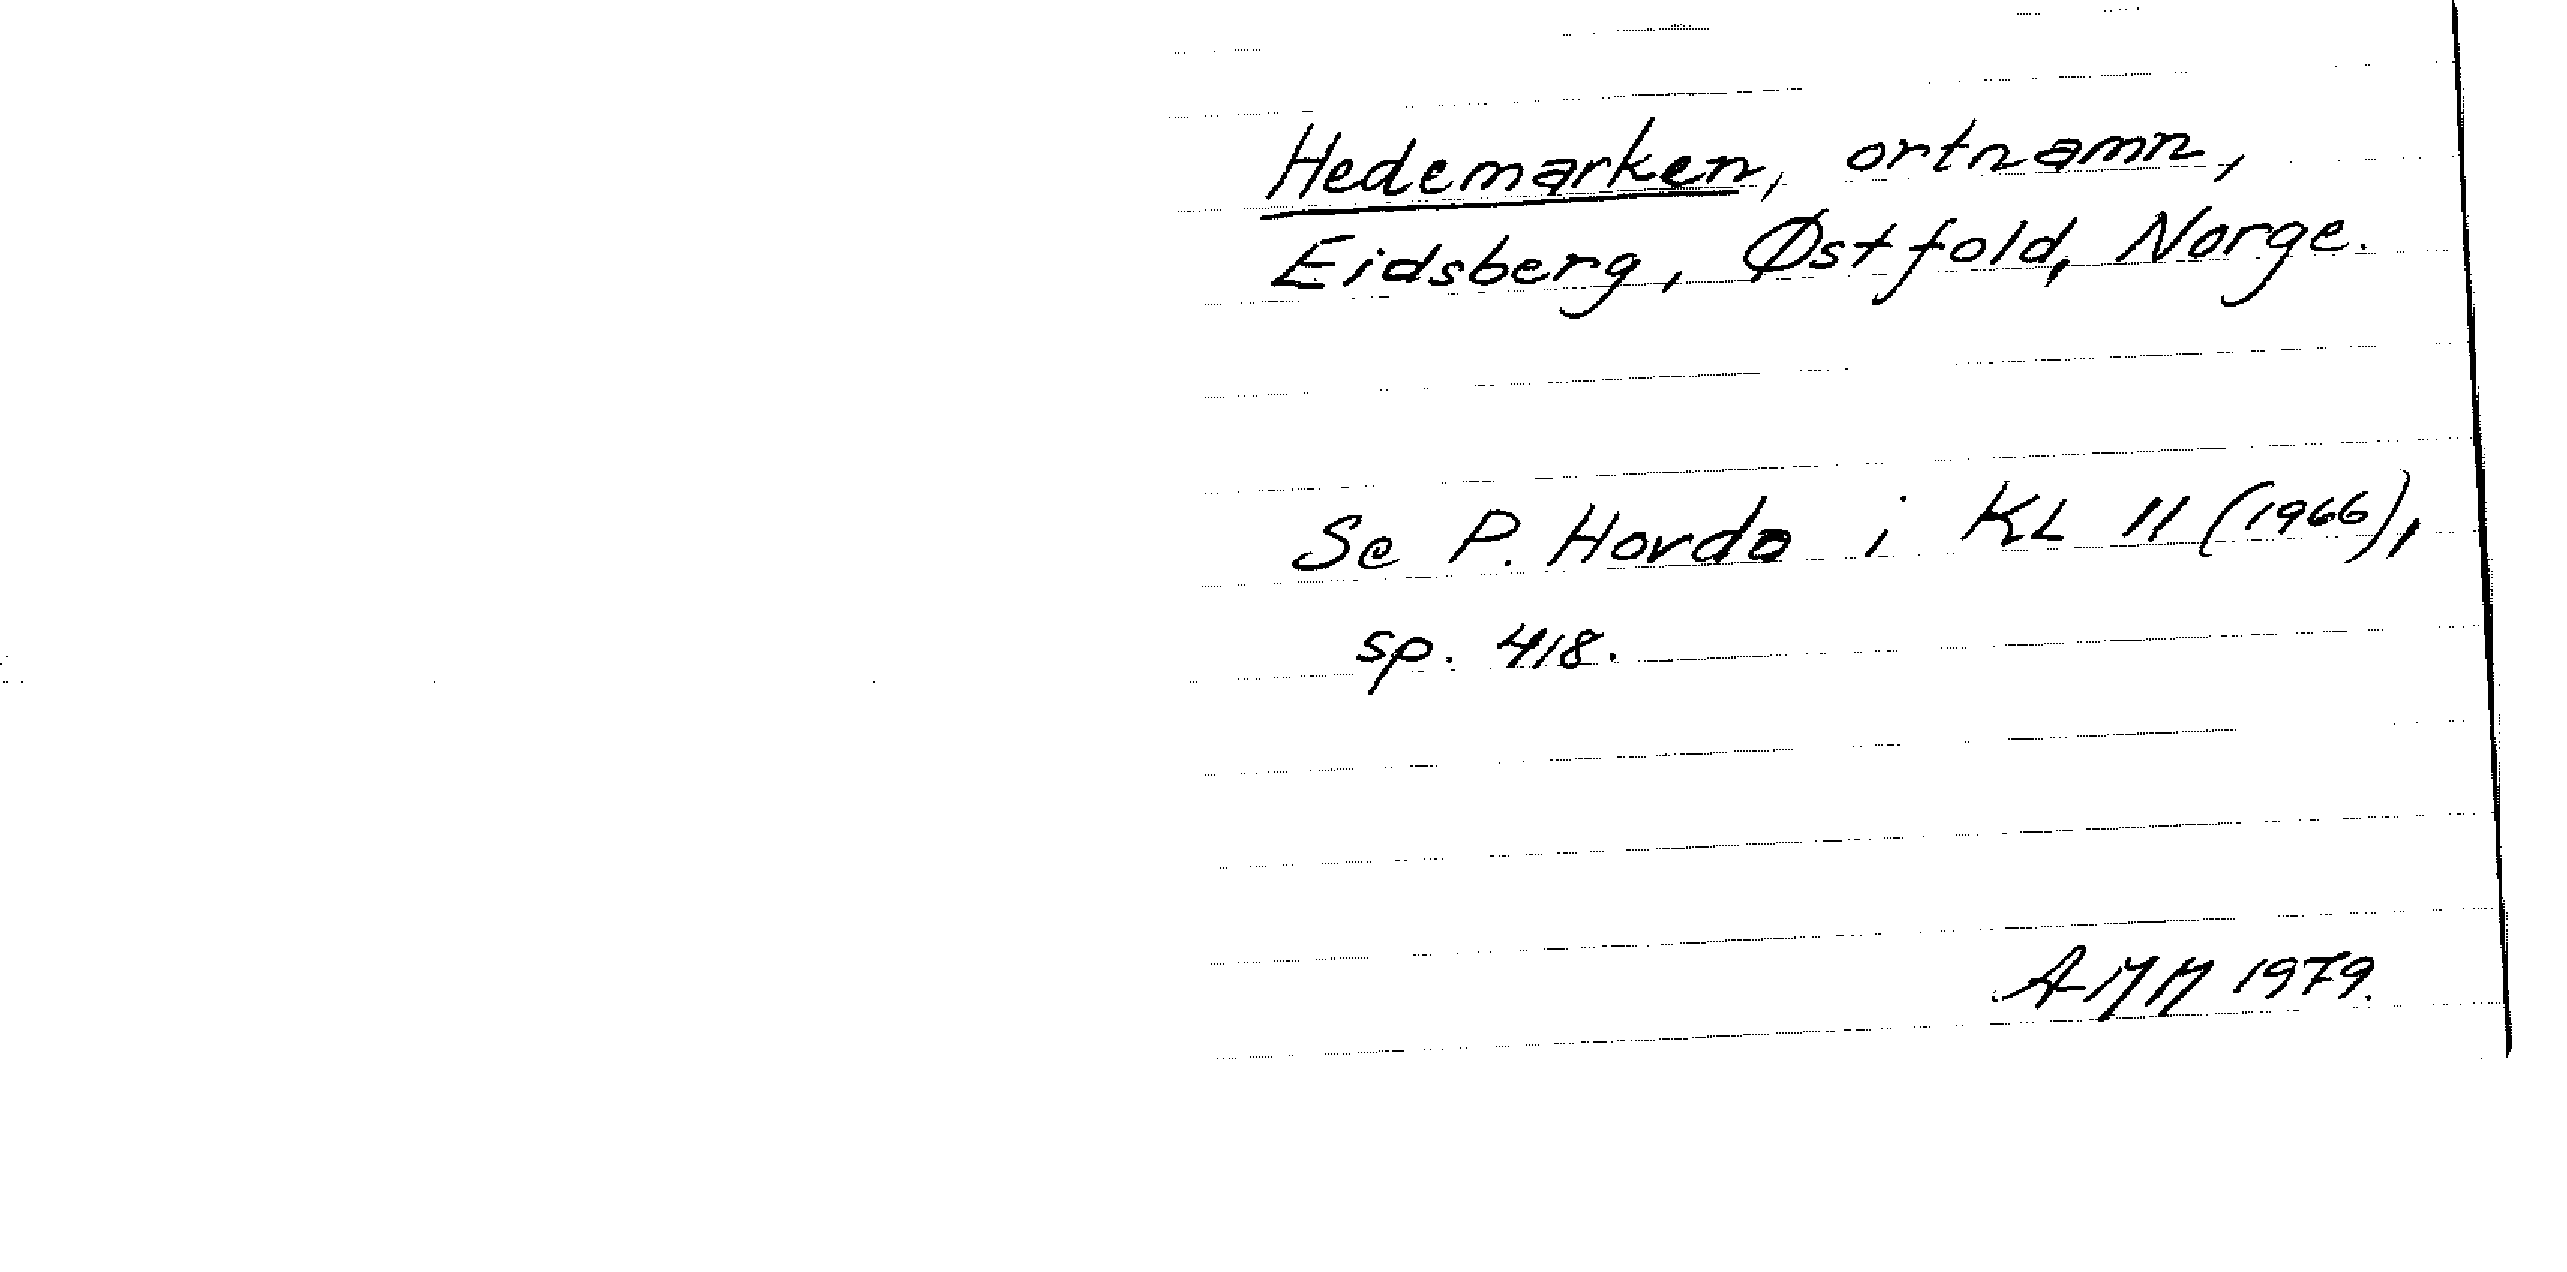 Hedemarken, ortnamn,
Eidsberg, Østfold, Norge.
Se P. Hovda i KL 11 (1966),
sp. 418.
1979.